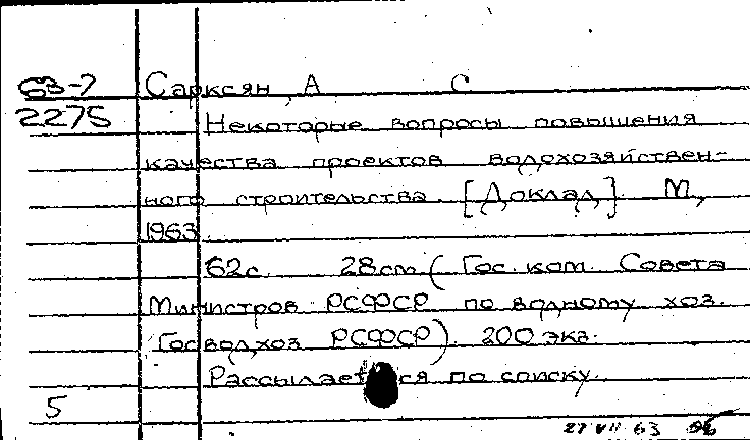 63-7 Сарксян, А С
2275
Некоторые вопросы повышения
качества проектов водохозяйствен-
ного строительства. [Доклад]. М,
1963.
62с. 28см (Гос. ком. Совета
Министров РСФСР по водному хоз.
Госводхоз РСФСР). 200 экз.
Рассылается по списку.
5
27 VII 63